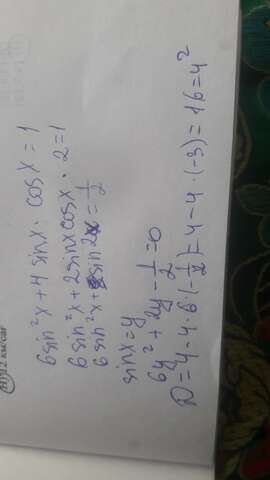 6sin²x + 4 sinx · cosx = 1
6sin²x + 2sinxcosx · 2 = 1
6sin²x + sin2x = 1/2
sinx = y
6y² + 2y - 1/2 = 0
D = 4 - 4 · 6 · (-1/2) = 4 - 4 · (-3) = 16 = 4²